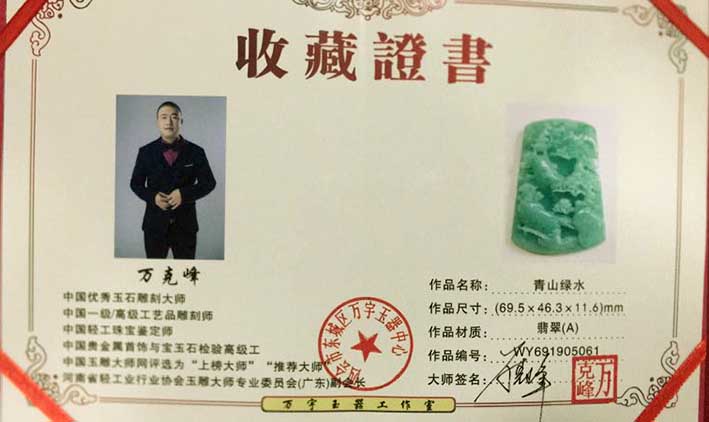 收藏證書
万克峰
中国优秀玉石雕刻大师
中国一级/高级工艺品雕刻师
中国轻工珠宝鉴定师
中国贵金属首饰与宝玉石检验高级工
中国玉雕大师网评选为“上榜大师”“推荐大师”
河南省轻工业行业协会玉雕大师专业委员会(广东)副会长
作品名称： 青山绿水
作品尺寸： (69.5×46.3×11.6)mm
作品材质： 翡翠(A)
作品编号： WY691905061
大师签名：
万克峰
四会市东城区万宇玉器中心
万宇玉器工作室